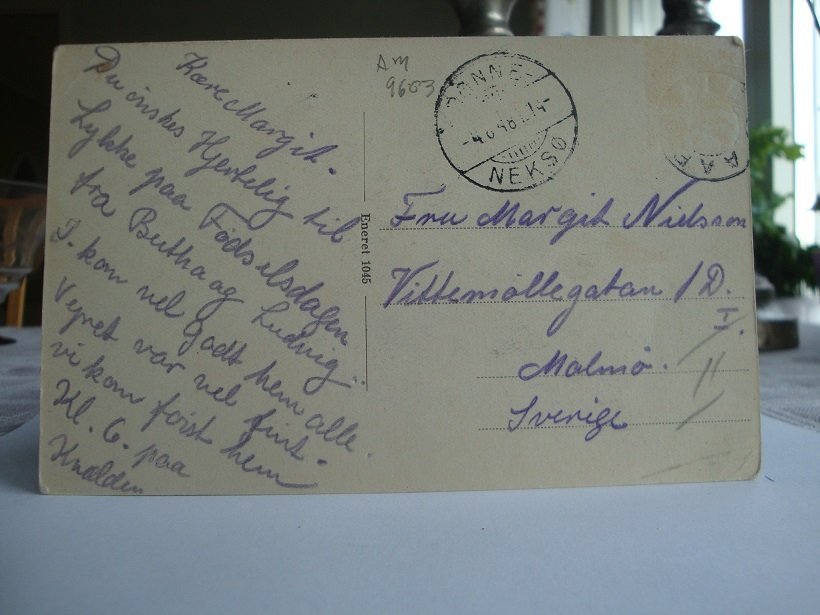 Kære Margit.
Du önskes Hjertelig til
Lykke paa Födselsdagen
fra Bertha og Ludvig
I. kom vel godt hem alle.
Vejret var vel fint.
vi kom først hem
Kl. 6. paa
Knalden
AM
9603
RØNNE-
NEKSØ
Eneret 1045
Fru Margit Nielsson
Vittemöllegatan 1 D.
I.
Malmö.
Sverige